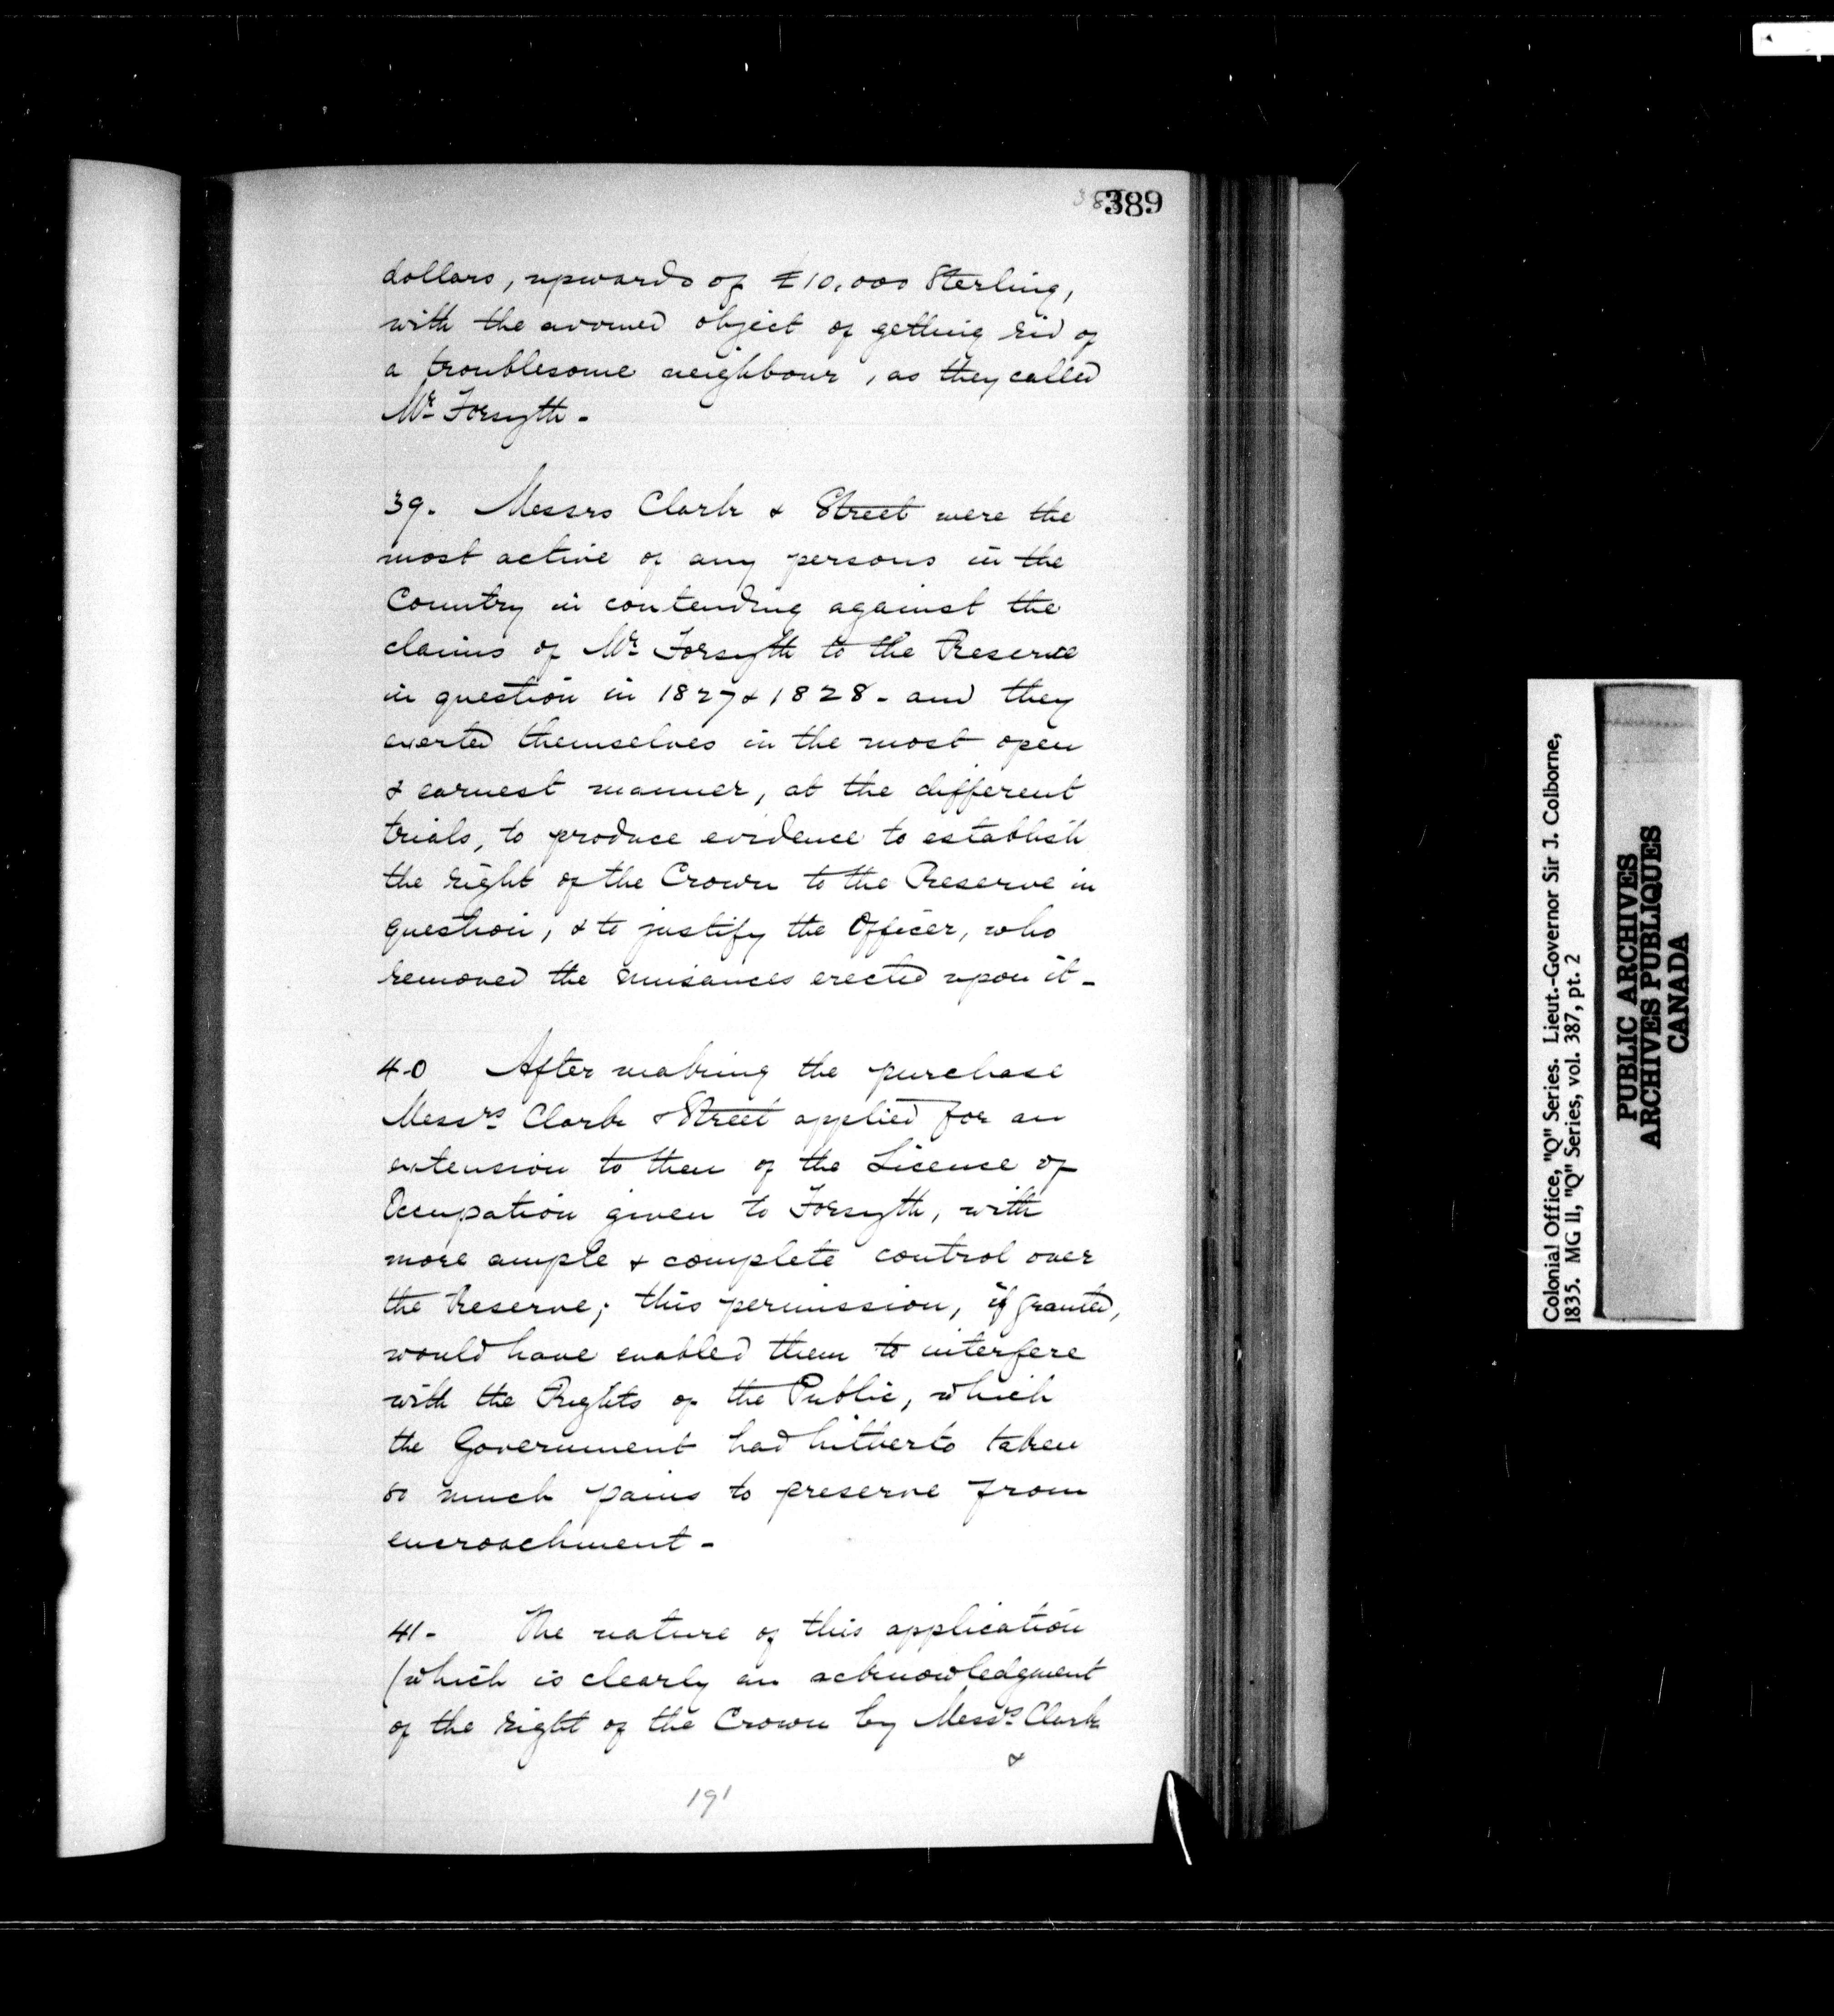 389
dollars, upwards of £10,000 Sterling,
with the avowed object of getting rid of
a troublesome neighbour, as they called
Mr Forsyth -
39. Messrs Clark & Street were the
most active of any persons in the
Country in contending against the
claims of Mr Forsyth to the Reserve
in question in 1827 & 1828 - and they
exerted themselves in the most open
& earnest manner, at the different
trials, to produce evidence to establish
the right of the Crown to the Reserve in
question, & to justify the Officer, who
removed the nuisances erected upon it -
40 After making the purchase
Messrs Clark & Street applied for an
extension to them of the License of
Occupation given to Forsyth, with
more ample & complete control over
the Reserve; this permission, if granted,
would have enabled them to interfere
with the Rights of the Public, which
the Government had hitherto taken
so much pains to preserve from
encroachment -
41 - The nature of this application
(which is clearly an acknowledgment
of the right of the Crown by Messrs Clark
&
191
Colonial Office, "Q" Series. Lieut.-Governor Sir J. Colborne,
1835. MG 11, "Q" Series, vol. 387, pt. 2
PUBLIC ARCHIVES
ARCHIVES PUBLIQUES
CANADA